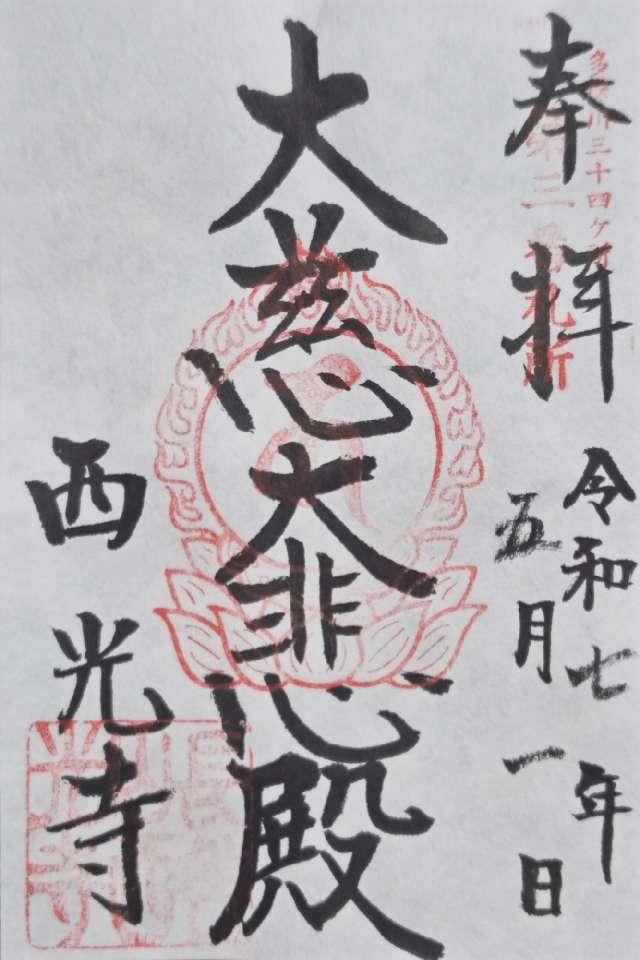 奉拝
多摩川三十四ヶ所
第三番札所
令和七年
五月一日
大慈大悲殿
西光寺